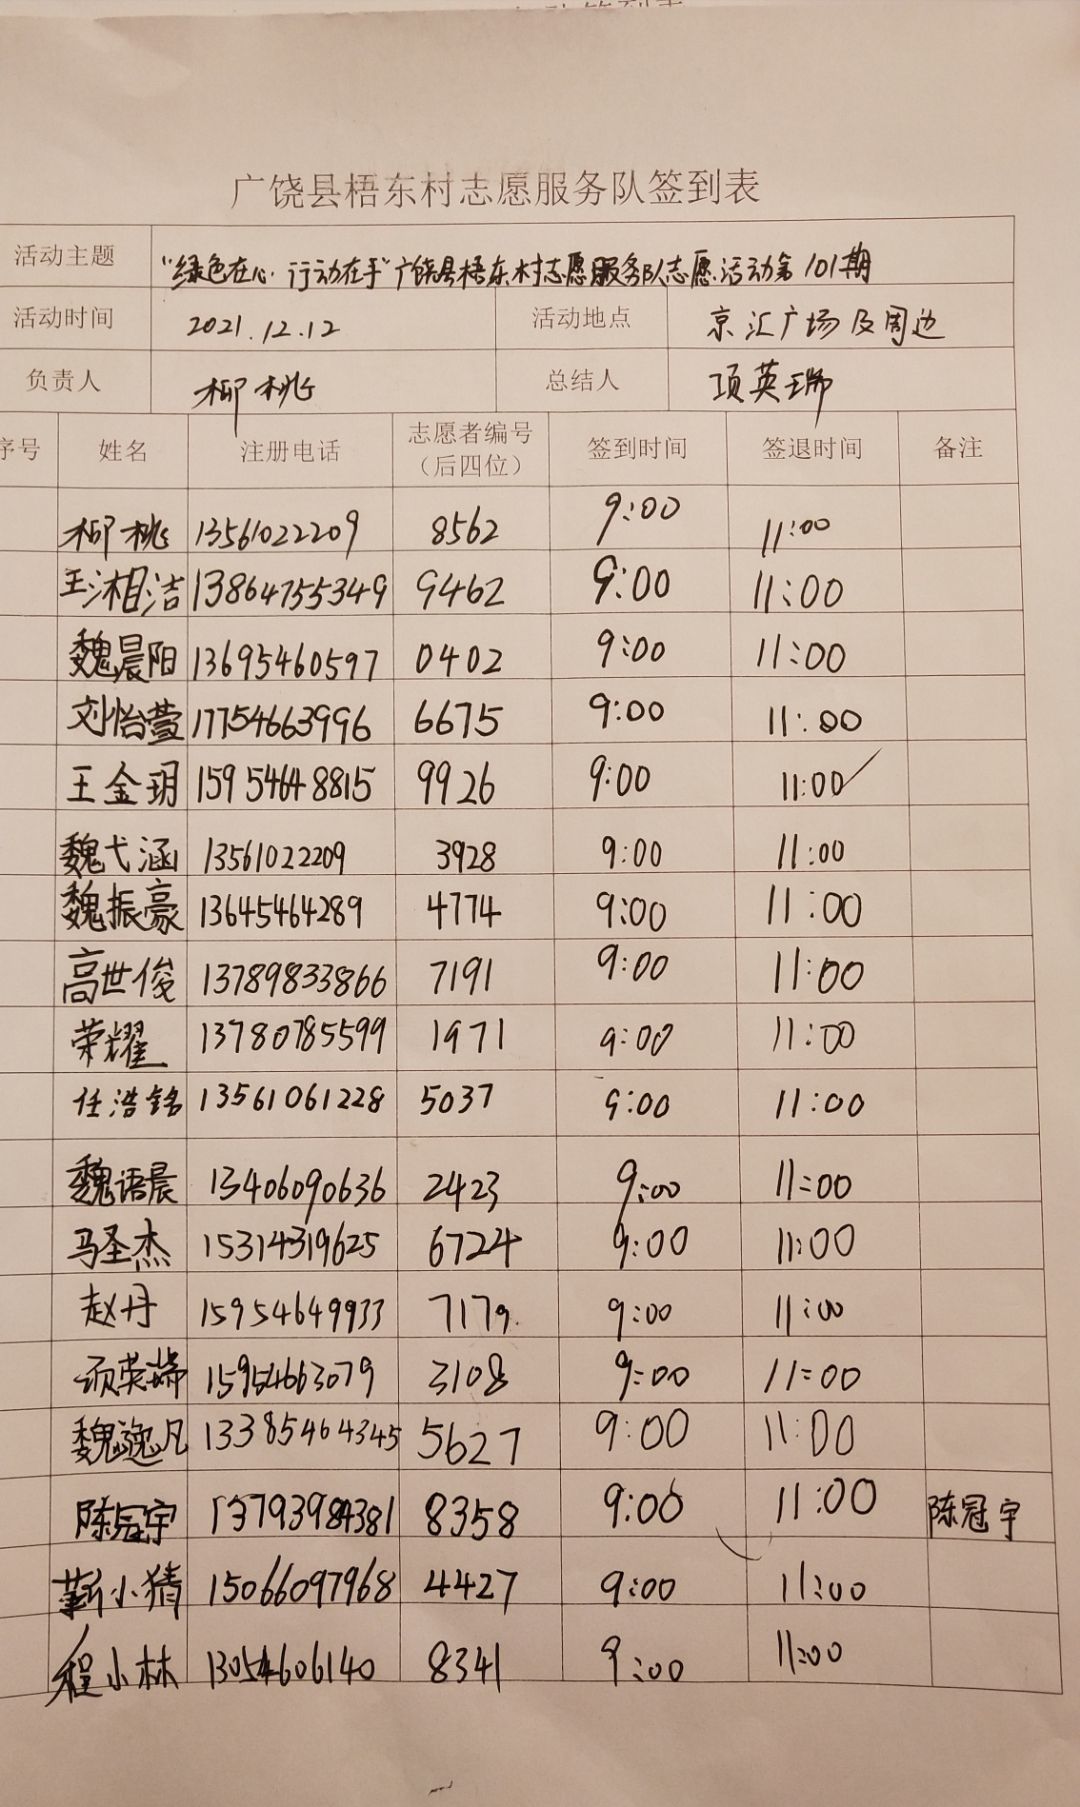 广饶县梧东村志愿服务队签到表
活动主题 “绿色在心·行动在手”广饶县梧东村志愿服务队志愿活动第101期
活动时间 2021.12.12 活动地点 京汇广场及周边
负责人 柳桃 总结人 项英瑞
序号 姓名 注册电话 志愿者编号（后四位） 签到时间 签退时间 备注
柳桃 13561022209 8562 9:00 11:00
王湘洁 13864755349 9462 9:00 11:00
魏晨阳 13695460597 0402 9:00 11:00
刘怡萱 17754663996 6675 9:00 11:00
王金玥 15954648815 9926 9:00 11:00
魏弋涵 13561022209 3928 9:00 11:00
魏振豪 13645464289 4774 9:00 11:00
高世俊 13789833866 7191 9:00 11:00
荣耀 13780785599 1971 9:00 11:00
任浩铭 13561061228 5037 9:00 11:00
魏语晨 13406090636 2423 9:00 11:00
马圣杰 15314319625 6724 9:00 11:00
赵丹 15954649933 7179. 9:00 11:00
项英瑞 15954663079 3108 9:00 11:00
魏逸凡 13385464345 5627 9:00 11:00
陈冠宇 13793984381 8358 9:00 11:00 陈冠宇
靳小猜 15066097968 4427 9:00 11:00
程小林 13054606140 8341 9:00 11:00